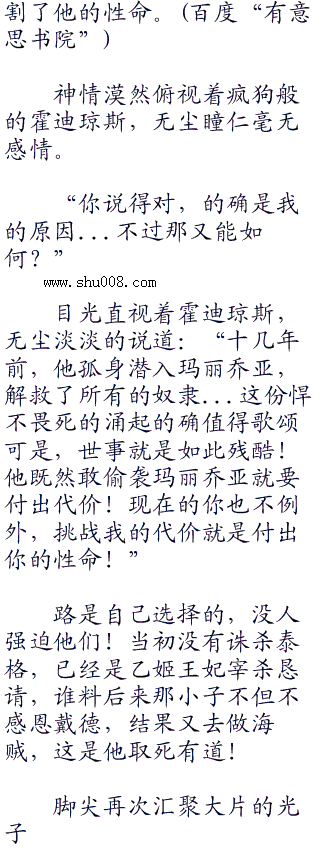 割了他的性命。(百度“有意
思书院”)
神情漠然俯视着疯狗般
的霍迪琼斯，无尘瞳仁毫无
感情。
“你说得对，的确是我
的原因...不过那又能如
何？”
www.shu008.com
目光直视着霍迪琼斯，
无尘淡淡的说道：“十几年
前，他孤身潜入玛丽乔亚，
解救了所有的奴隶...这份悍
不畏死的涌起的确值得歌颂
可是，世事就是如此残酷！
他既然敢偷袭玛丽乔亚就要
付出代价！现在的你也不例
外，挑战我的代价就是付出
你的性命！”
路是自己选择的，没人
强迫他们！当初没有诛杀泰
格，已经是乙姬王妃宰杀恳
请，谁料后来那小子不但不
感恩戴德，结果又去做海
贼，这是他取死有道！
脚尖再次汇聚大片的光
子